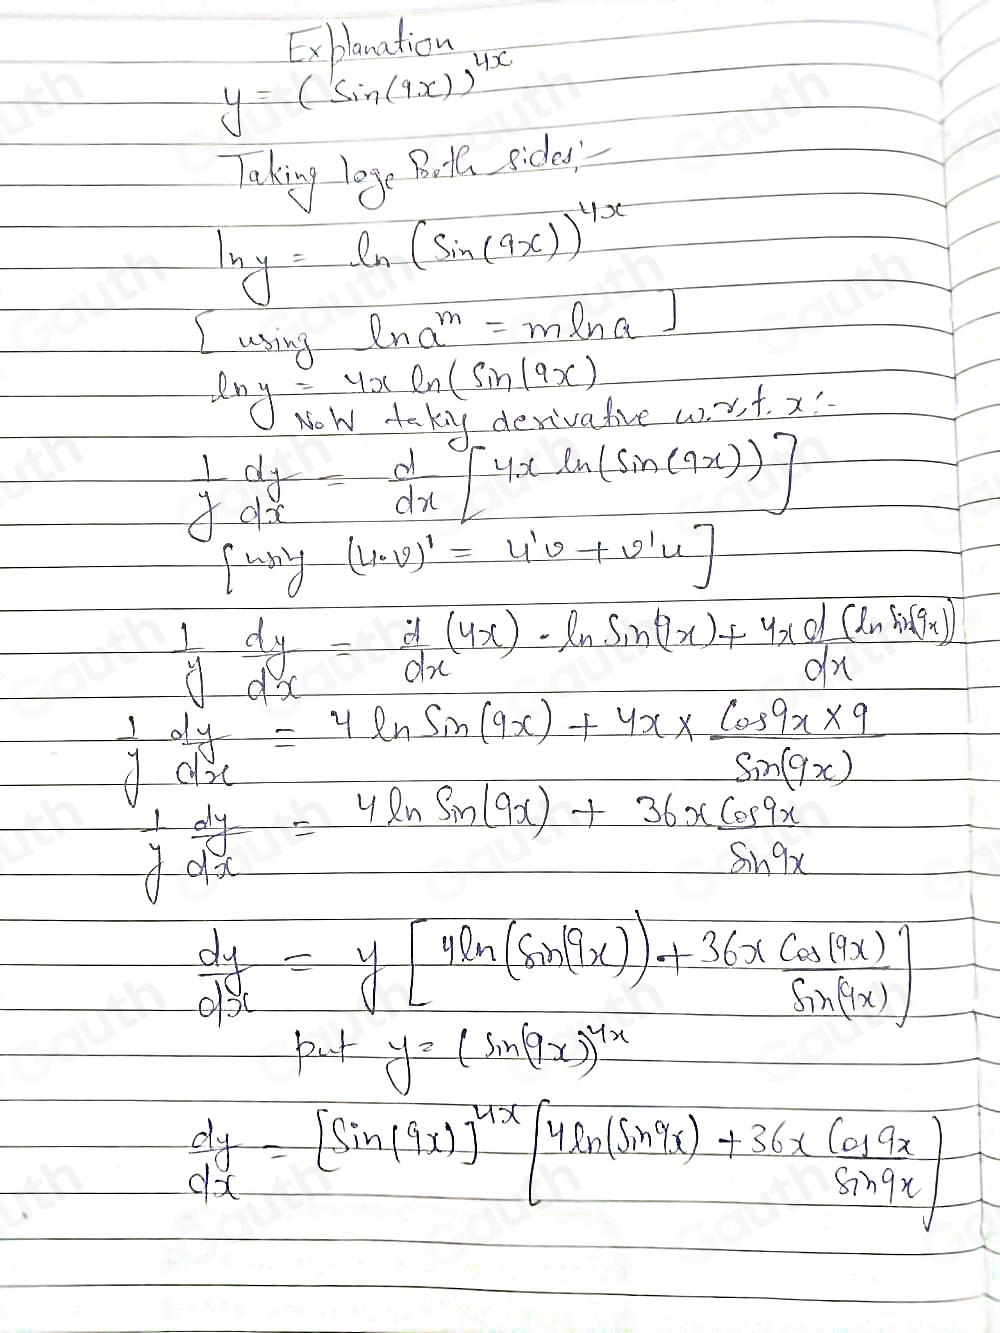 Explanation
y = (Sin(9x))^4x
Taking loge Both sides:-
lny = ln (Sin(9x))^4x
[using ln a^m = m ln a]
lny = 4x ln(Sin(9x)
Now takiy derivative w.r.t. x:-
1/y dy/dx = d/dx [4x ln(Sin(9x))]
[usiy (u.v)' = u'v + v'u]
1/y dy/dx = d/dx (4x) · ln Sin(9x) + 4x d/dx (ln Sin(9x))
1/y dy/dx = 4 ln Sin(9x) + 4x × Cos9x × 9/Sin(9x)
1/y dy/dx = 4 ln Sin(9x) + 36x Cos9x/Sin9x
dy/dx = y [4ln(Sin(9x)) + 36x Cos(9x)/Sin(9x)]
put y = (Sin(9x))^4x
dy/dx = [Sin(9x)]^4x [4ln(Sin9x) + 36x Cos9x/Sin9x]